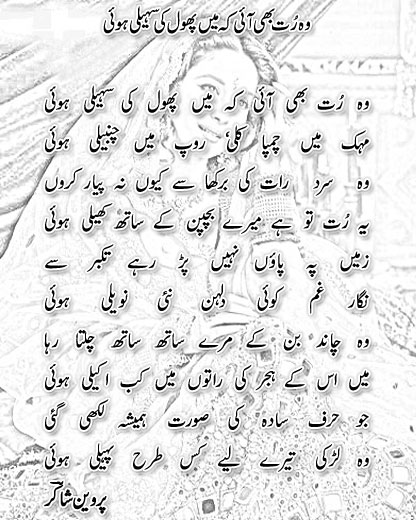 وہ رُت بھی آئی کہ میں پھول کی سہیلی ہوئی
وہ رُت بھی آئی کہ میں پھول کی سہیلی ہوئی
مہک میں چمپا کلی، روپ میں چنبیلی ہوئی
وہ سرد رات کی برکھا سے کیوں نہ پیار کروں
یہ رُت تو ہے میرے بچپن کے ساتھ کھیلی ہوئی
زمیں پہ پاؤں نہیں پڑ رہے تکبر سے
نگار غم کوئی دلہن نئی نویلی ہوئی
وہ چاند بن کے مرے ساتھ ساتھ چلتا رہا
میں اس کے ہجر کی راتوں میں کب اکیلی ہوئی
جو حرف سادہ کی صورت ہمیشہ لکھی گئی
وہ لڑکی تیرے لیے کس طرح پہیلی ہوئی
پروین شاکر